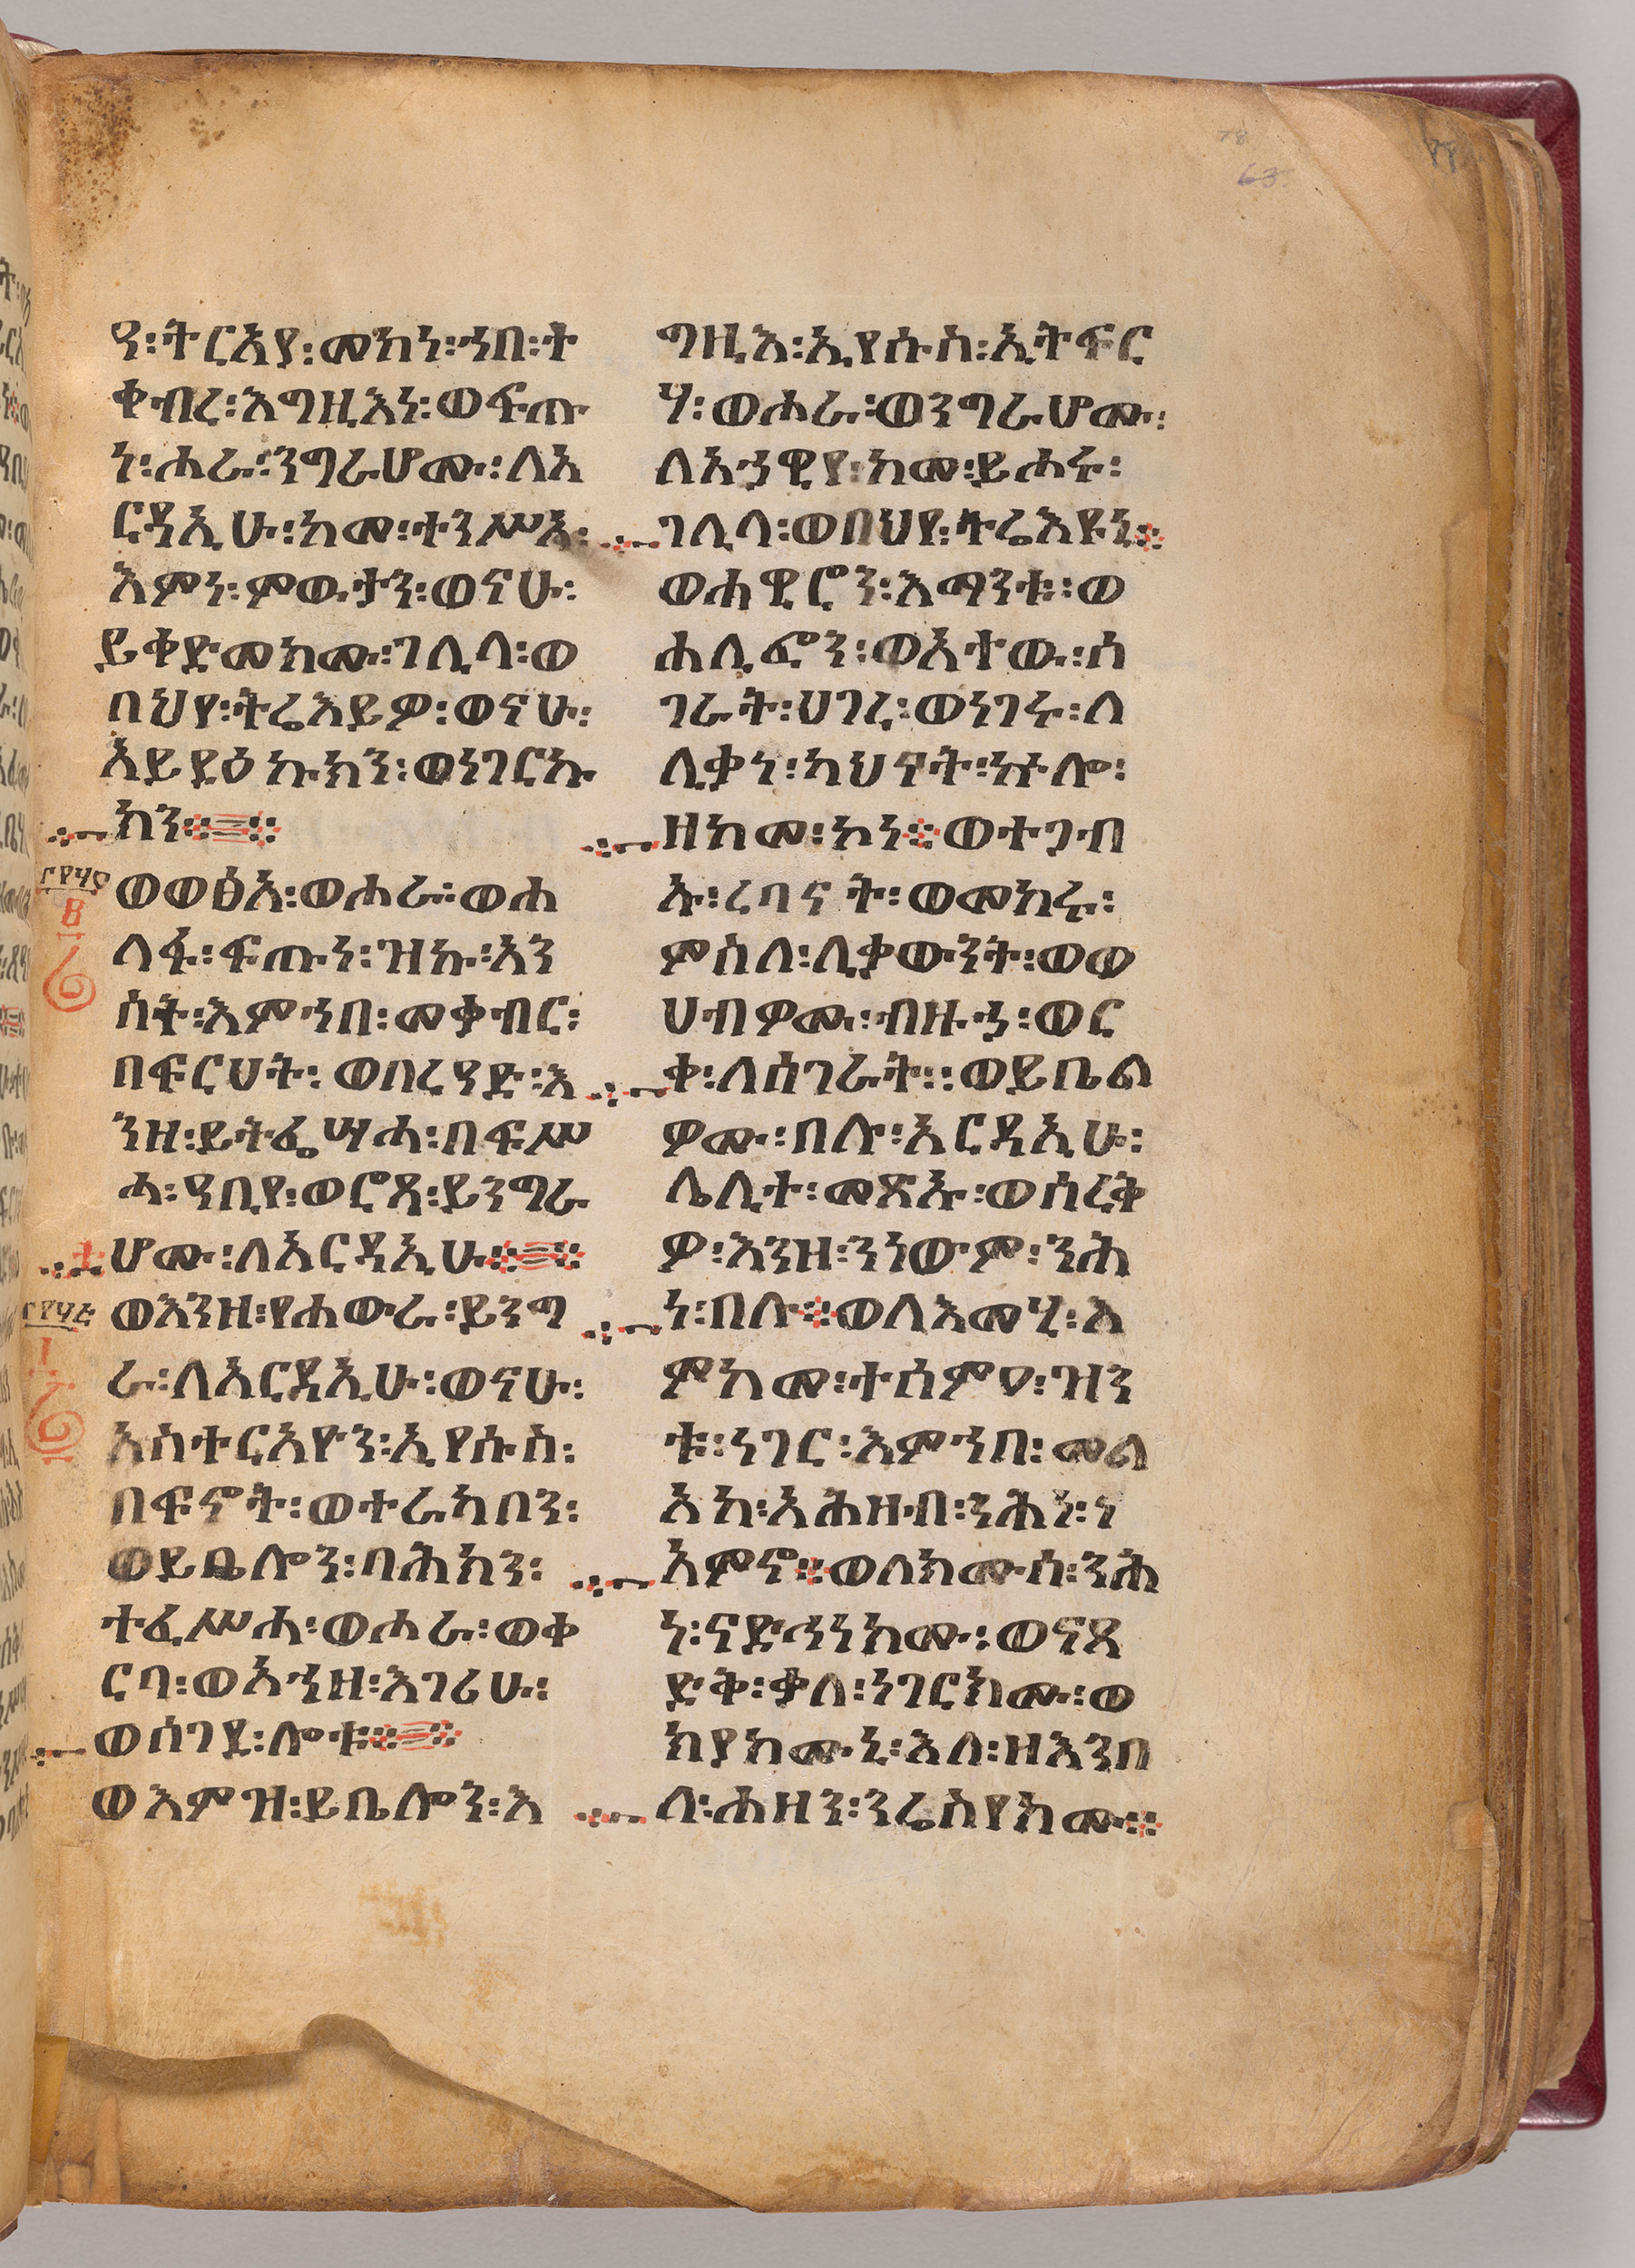 ዓ፡ትርአያ፡መከነ፡ኀበ፡ተ
ቀብረ፡እግዚእነ፡ወፍጡ
ነ፡ሑራ፡ንግራሆሙ፡ለአ
ርዳኢሁ፡ከመ፡ተንሥአ፡
እምነ፡ምውታን፡ወናሁ፡
ይቀድመክሙ፡ገሊላ፡ወ
በህየ፡ትሬእይዎ፡ወናሁ፡
አይዳዕኩክን፡ወነገርኩ
ክን፨
ወወፅአ፡ወሐራ፡ወሐ
ለፋ፡ፍጡነ፡ዝኩ፡አን
ስት፡እምኀበ፡መቃብር፡
በፍርሀት፡ወበረዓድ፡እ
ንዘ፡ይትፌሣሓ፡በፍሥ
ሓ፡ዓቢየ፡ወሮጻ፡ይንግራ
ሆሙ፡ለአርዳኢሁ፨
ወእንዘ፡የሐውራ፡ይንግ
ራ፡ለአርዳኢሁ፡ወናሁ፡
አስተርአዮን፡ኢየሱስ፡
በፍኖት፡ወተራከበን፡
ወይቤሎን፡ባሕክን፡
ተፈሥሓ፡ወሓራ፡ወቀ
ርባ፡ወአኀዘ፡እገሪሁ፡
ወሰገዳ፡ሎቱ፨
ወእምዝ፡ይቤሎን፡እ
ግዚእ፡ኢየሱስ፡ኢትፍር
ሃ፡ወሑራ፡ወንግራሆሙ፡
ለአኃዊየ፡ከመ፡ይሑሩ፡
ገሊላ፡ወበህየ፡ትሬእዩኒ፨
ወሐዊሮን፡እማንቱ፡ወ
ሐሊፎን፡ወአተው፡ሰ
ገራት፡ሀገረ፡ወነገሩ፡ለ
ሊቃነ፡ካህናት፡ኵሎ፡
ዘከመ፡ኮነ፨ወተጋብ
ኡ፡ረባናት፡ወመከሩ፡
ምስለ፡ሊቃውንት፡ወወ
ሀብዎሙ፡ብዙኃ፡ወር
ቀ፡ለሰገራት፡፡ወይቤል
ዎሙ፡በሉ፡አርዳኢሁ፡
ሌሊተ፡መጽኡ፡ወሰረቅ
ዎ፡እንዘ፡ንነውም፡ንሕ
ነ፡በሉ፨ወለእመሂ፡እ
ምከመ፡ተሰምዐ፡ዝን
ቱ፡ነገር፡እምኀበ፡መል
አከ፡አሕዛብ፡ንሕነ፡ነ
አምኖ፨ወለክሙሰ፡ንሕ
ነ፡ናድኅነክሙ፡ወናጸ
ድቅ፡ቃለ፡ነገርክሙ፡ወ
ክያክሙኒ፡እለ፡ዘእንበ
ለ፡ሐዘን፡ንሬስየክሙ፨